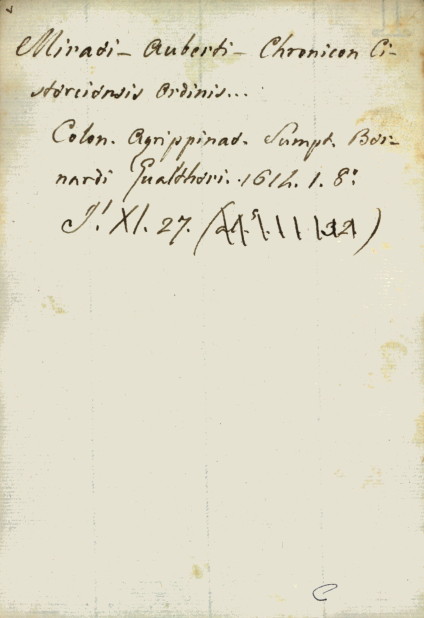 Miraei - Auberti - Chronicon Ci-
sterciensis Ordinis...
Colon. Agrippinae. Sumpt. Ber-
nardi Gualtheri. 1614. 1. 8º
J! XI. 27.
C